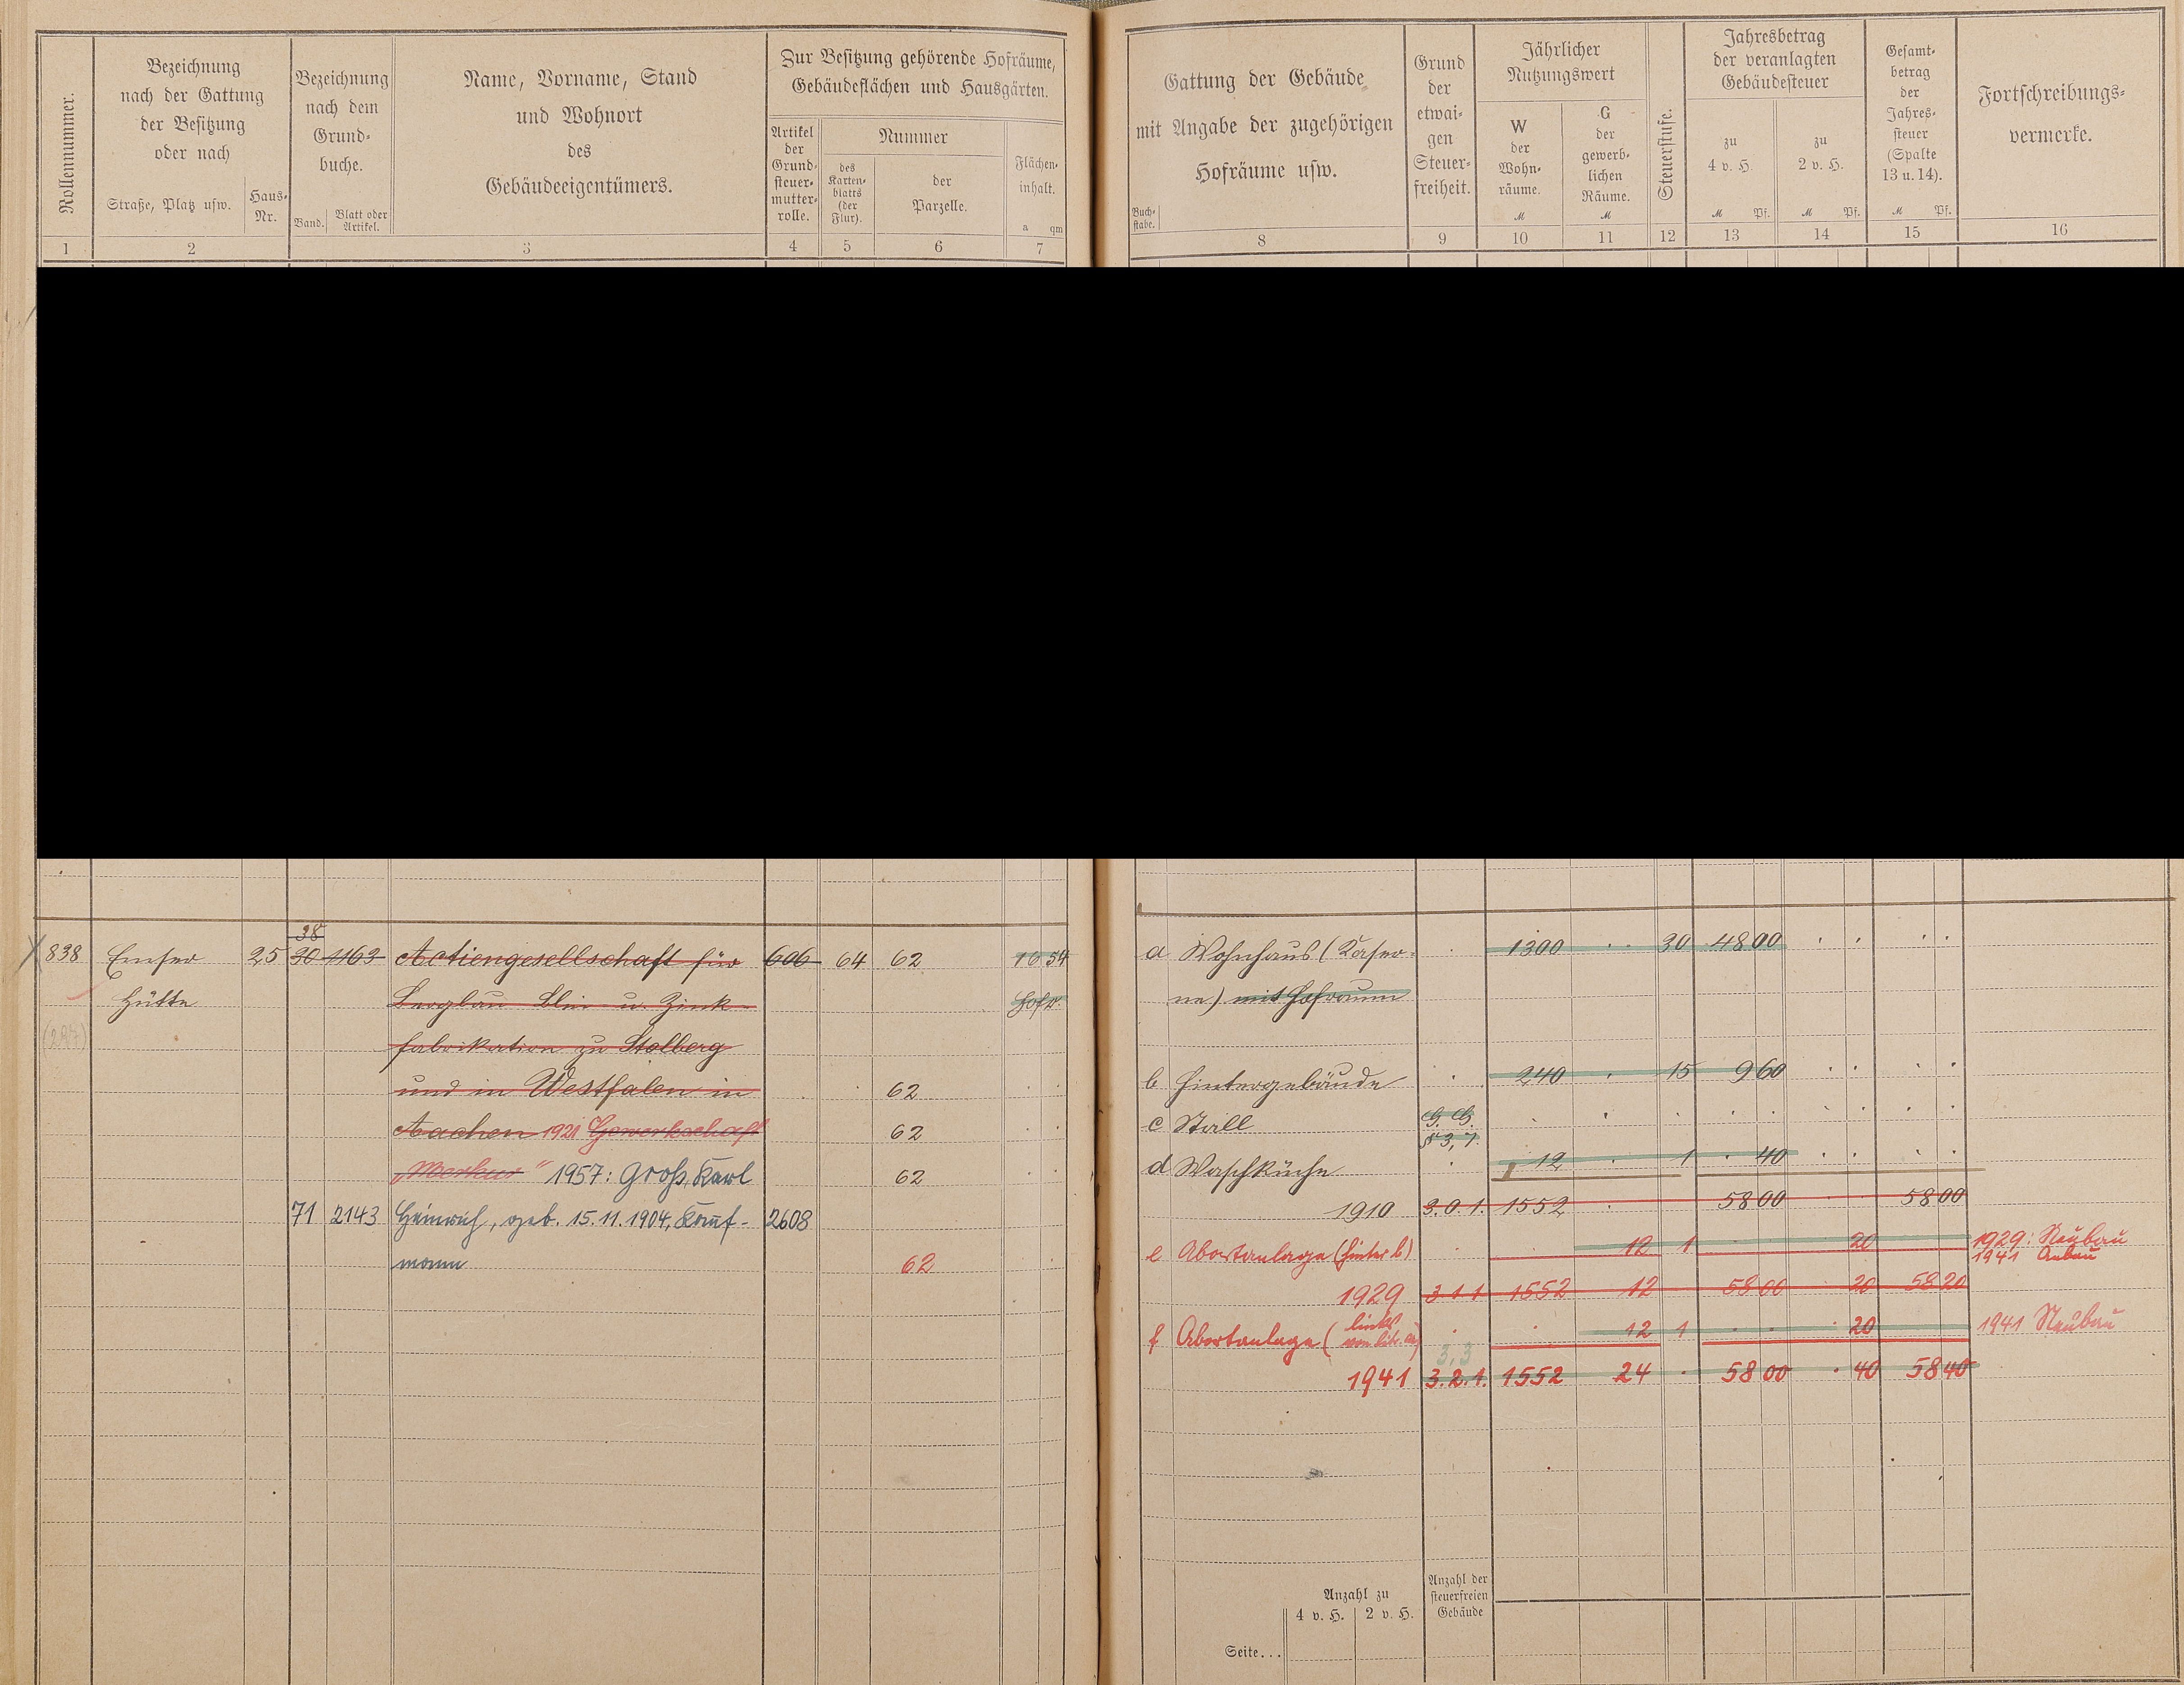 Rollennummer.
Bezeichnung
nach der Gattung
der Besitzung
oder nach
Straße, Platz usw.
Haus-
Nr.
Bezeichnung
nach dem
Grund-
buche.
Band.
Blatt oder
Artikel.
Name, Vorname, Stand
und Wohnort
des
Gebäudeeigentümers.
Zur Besitzung gehörende Hofräume,
Gebäudeflächen und Hausgärten.
Artikel
der
Grund-
steuer-
mutter-
rolle.
Nummer
des
Karten-
blatts
(der
Flur).
der
Parzelle.
Flächen-
inhalt.
a qm
1 2 3 4 5 6 7
838 Emser 25 38 30 1163 Actiengesellschaft für 606 64 62 16 54
Hütte Bergbau Blei u. Zink- Hofr.
fabrikation zu Stolberg
und in Westfalen in 62
Aachen 1921 Gewerkschaft 62
„Merkur“ 1957: Groß, Karl 62
71 2143 Heinrich, geb. 15.11.1904, Kauf- 2608
mann 62
Gattung der Gebäude
mit Angabe der zugehörigen
Hofräume usw.
Buch-
stabe.
Grund
der
etwai-
gen
Steuer-
freiheit.
Jährlicher
Nutzungswert
W
der
Wohn-
räume.
M
G
der
gewerb-
lichen
Räume.
M
Steuerstufe.
Jahresbetrag
der veranlagten
Gebäudesteuer
zu
4 v. H.
M Pf.
zu
2 v. H.
M Pf.
Gesamt-
betrag
der
Jahres-
steuer
(Spalte
13 u. 14).
M Pf.
Fortschreibungs-
vermerke.
8 9 10 11 12 13 14 15 16
a Wohnhaus (Kaser- 1300 30 48 00
ne) mit Hofraum
b Hintergebäude 240 15 9 60
c Stall G. G.
§ 3, 7.
d Waschküche 12 1 40
1910 3.0.1. 1552 58 00 58 00
e Abortanlage (hinter b) 12 1 20 1929: Neubau
1941 Anbau
1929 3 1 1 1552 12 58 00 20 58 20
f Abortanlage (links von lit. a) 12 1 20 1941 Neubau
3,3
1941 3.2.1. 1552 24 58 00 40 58 40
Anzahl zu
4 v. H. 2 v. H.
Anzahl der
steuerfreien
Gebäude
Seite...